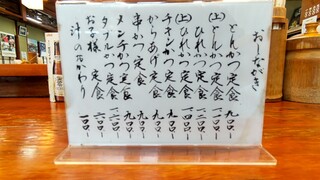 おしながき
とんかつ定食 九〇〇−
(上)とんかつ定食 一二〇〇−
ひれかつ定食 一一〇〇−
(上)ひれかつ定食 一四〇〇−
チキンかつ定食 九〇〇−
からあげ定食 九〇〇−
串かつ定食 九〇〇−
メンチかつ定食 九〇〇−
ダブルかつ定食
お子様定食
汁のおかわり 一〇〇−